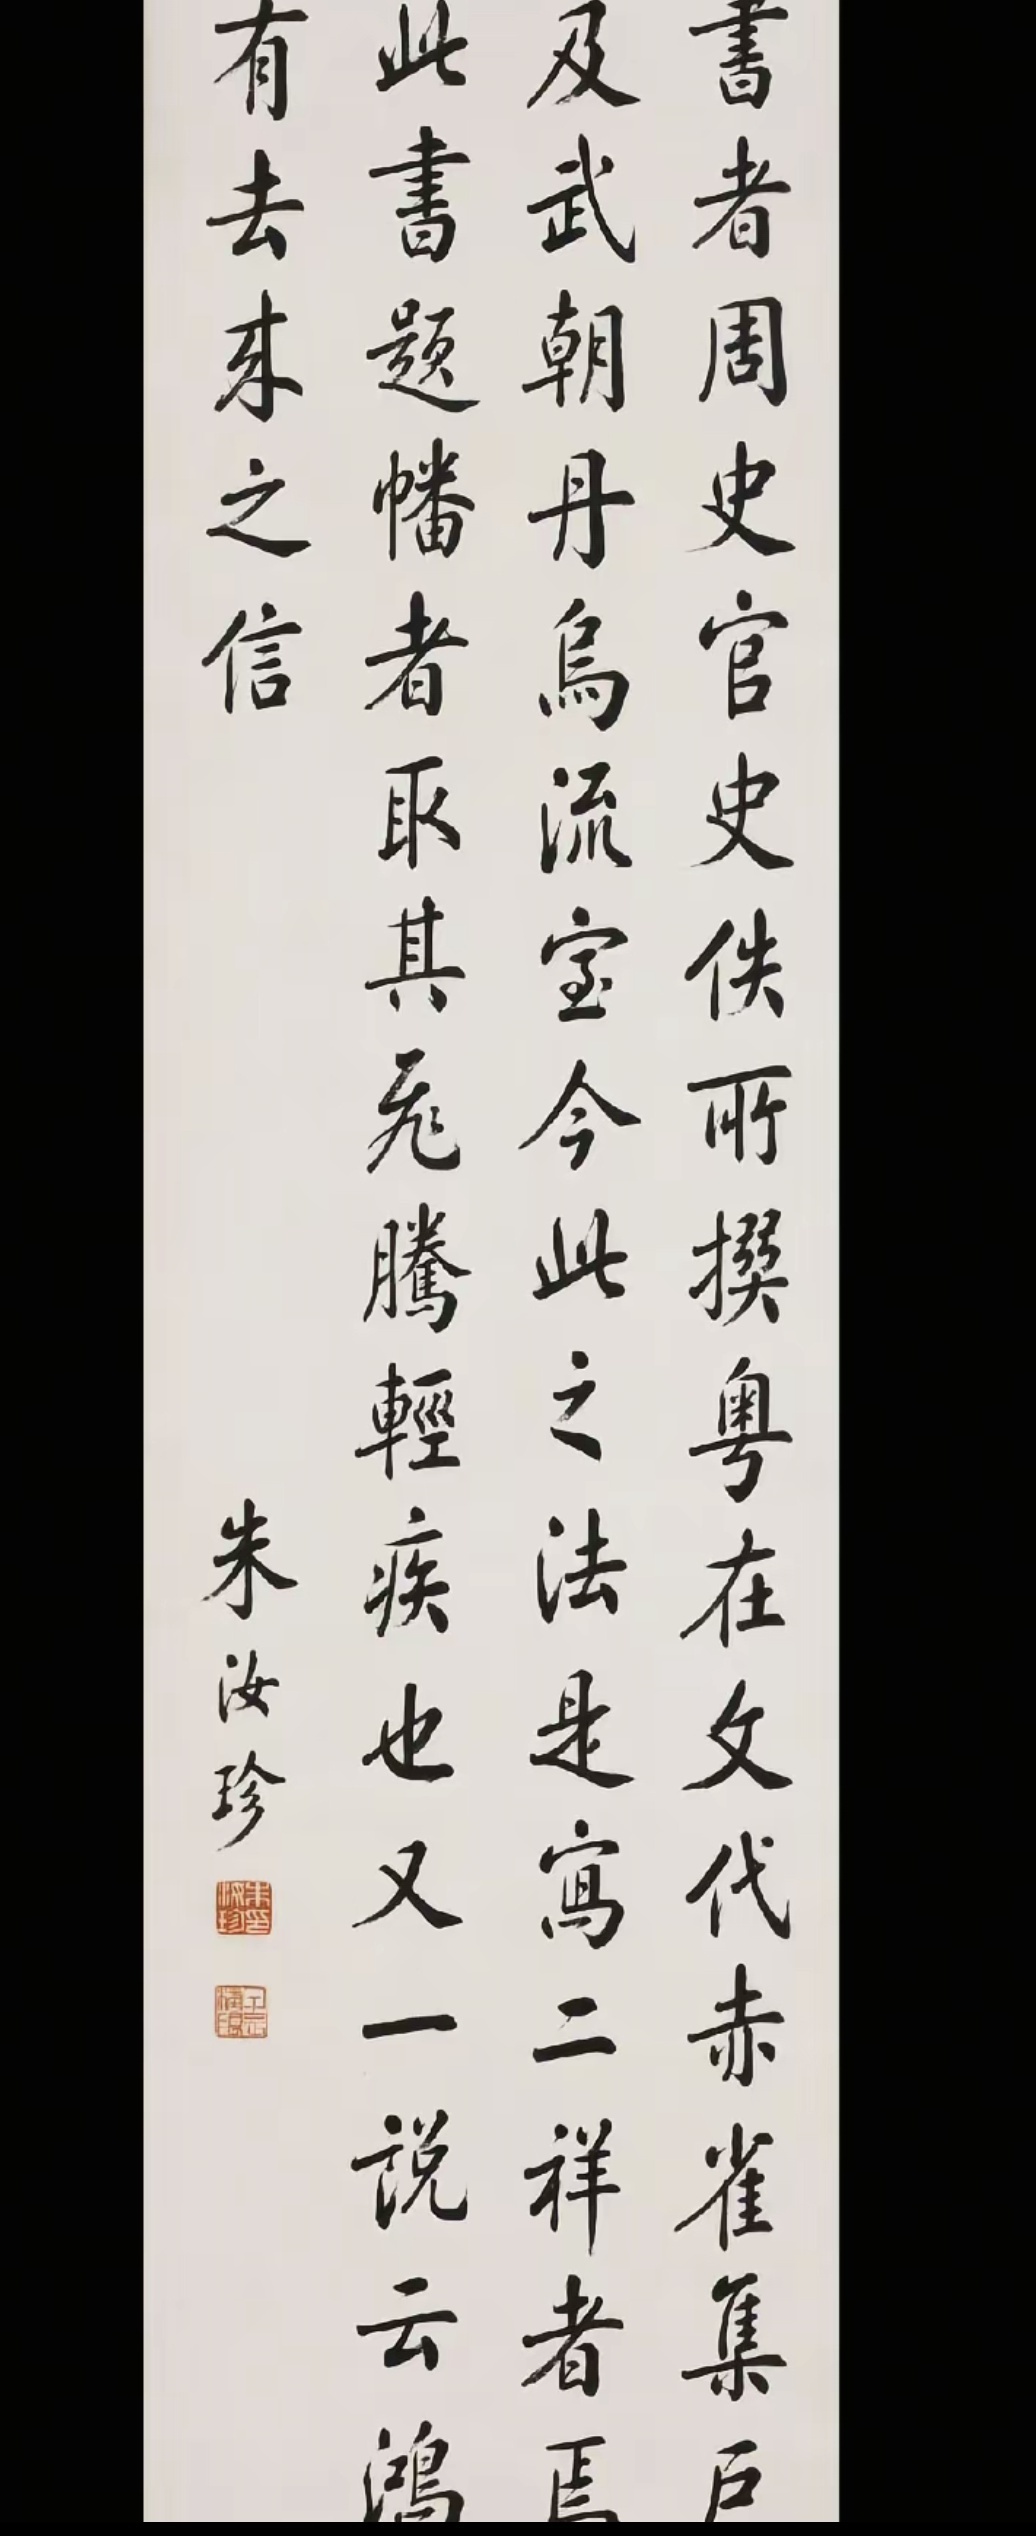 書者周史官史佚所撰粵在文代赤雀集戶
及武朝丹烏流室今此之法是寫二祥者焉
此書題幡者取其飛騰輕疾也又一説云鴻
有去来之信
朱汝珍